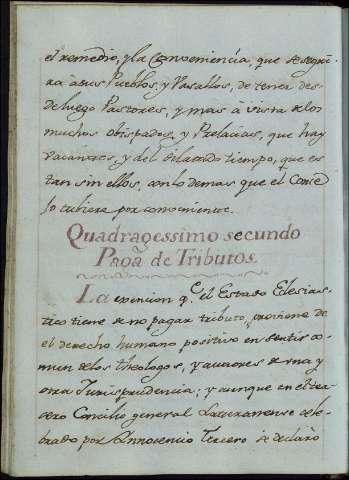 el remedio, y la Conveniencia, que se segui-
ra à sus Pueblos, y Vasallos, de tener des-
deluego Pastores, y mas à vista de los
muchos obispados, y Prelacias, que hay
vacantes, y del dilatado tiempo, que es
tan sin ellos, con lo demas que el Conse
jo tubiere por conveniente.
Quadragessimo secundo
Paga de Tributos.
La exencion q.e el Estado Eclesias-
tico tiene de no pagar tributo, proviene de
el derecho humano positivo en sentir co-
mun de los theologos, y autores de una, y
otra Jurisprudencia; y aunque en el ter-
cero Concilio general Lateranense cele-
brado por Innosencio Tercero se declarò